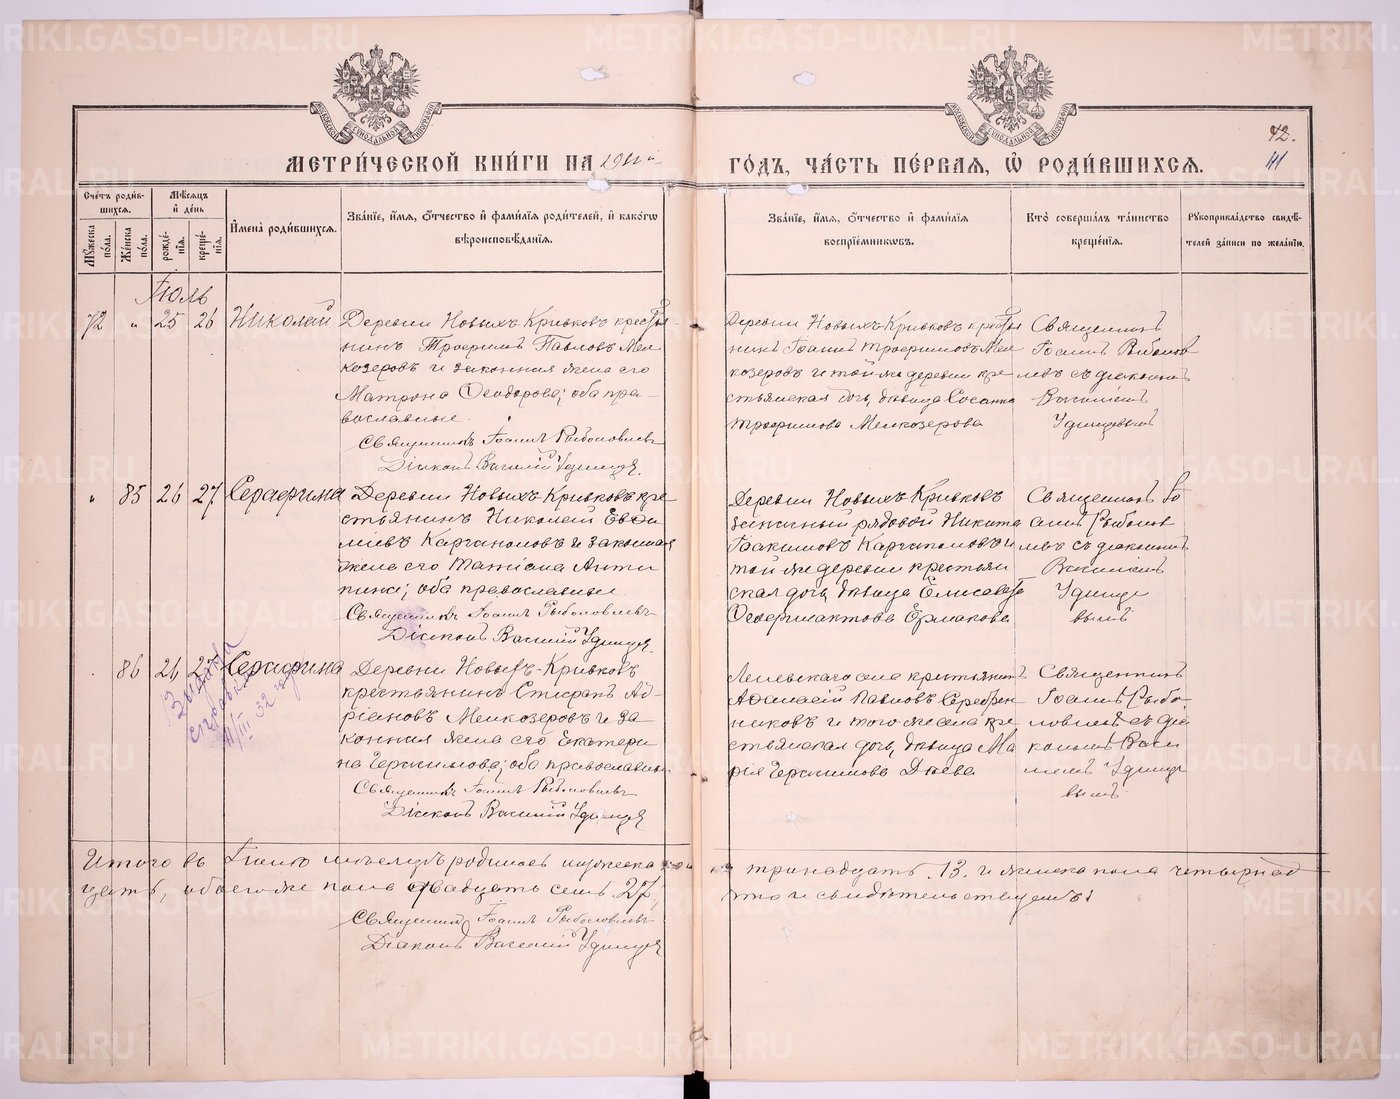 МЕТРИ́ЧЕСКОЙ КНИ́ГИ НА 1911й
ГО́ДЪ, ЧА́СТЬ ПЕ́РВАЯ, Ѡ РОДИ́ВШИХСЯ.
42.
41
Счéтъ роди́в-
шихся.
Мѣ́сяцъ
и҆ дéнь
Мꙋжеска по́ла.
Же́нска по́ла.
рождé-
нїя.
крещé-
нїя.
И҆мена̀ роди́вшихся.
Зва́нїе, и҆́мя, ѻ҆́тчество и҆ фами́лїя роди́телей, и҆ како́гѡ
вѣроисповѣ́данїя.
Зва́нїе, и҆́мя, ѻ҆́тчество и҆ фами́лїя
воспрїе́мникѡвъ.
Кто̀ соверша́лъ та́инство
крещéнїя.
Рꙋкоприкла́дство свидѣ́-
телей за́писи по жела́нїю.
Іюль
72 „ 25 26 Николай
Деревни Новыхъ-Кривковъ крестья-
нинъ Трофимъ Павловъ Мел
козеровъ и законная жена его
Матрона Ѳеодорова; оба пра-
вославные
Священникъ Іоаннъ Рыболовлевъ
Діаконъ Василій Удинцевъ.
Деревни Новыхъ-Кривковъ крестья
нинъ Іоаннъ Трофимовъ Мел
козеровъ и той же деревни кре
стьянская дочь, дѣвица Сосанна
Трофимова Мелкозерова
Священникъ
Іоаннъ Рыболов
левъ съ діакономъ
Василіемъ
Удинцевымъ
„ 85 26 27 Серафима
Деревни Новыхъ-Кривковъ кре-
стьянинъ Николай Евѳи
міевъ Каргаполовъ и законная
жена его Татіана Анти
пина; оба православные.
Священникъ Іоаннъ Рыболовлевъ
Діаконъ Василій Удинцевъ.
Деревни Новыхъ-Кривковъ
запасный рядовой Никита
Іоакимовъ Каргаполовъ и
той же деревни крестьян
ская дочь, дѣвица Елисавета
Ермакова
Священникъ Іо
аннъ Рыболов
левъ съ діакономъ
Василіемъ
Удинце
вымъ
„ 86 26 27 Серафима
Выдана
справка
11/III 32 года
Деревни Новыхъ-Кривковъ
крестьянинъ Стефанъ Ад-
ріановъ Мелкозеровъ и за
конная жена его Екатери
на Герасимова; оба православные
Священникъ Іоаннъ Рыболовлевъ
Діаконъ Василій Удинцевъ
села крестьянинъ
Аѳанасій Павловъ Серебрен
никовъ и того же села кре
стьянская дочь, дѣвица Ма
рія Герасимова Дѣева
Священникъ
Іоаннъ Рыбо-
ловлевъ съ діа
кономъ Васи
ліемъ Удинце
вымъ
Итого въ Іюлѣ мѣсяцѣ родилось мужеска пола тринадцать .13. и женска пола четырнад
цать, обоего же пола двадцать семь 27, что и свидѣтельствуемъ:
Священникъ Іоаннъ Рыболовлевъ
Діаконъ Василій Удинцевъ
METRIKI.GASO-URAL.RU